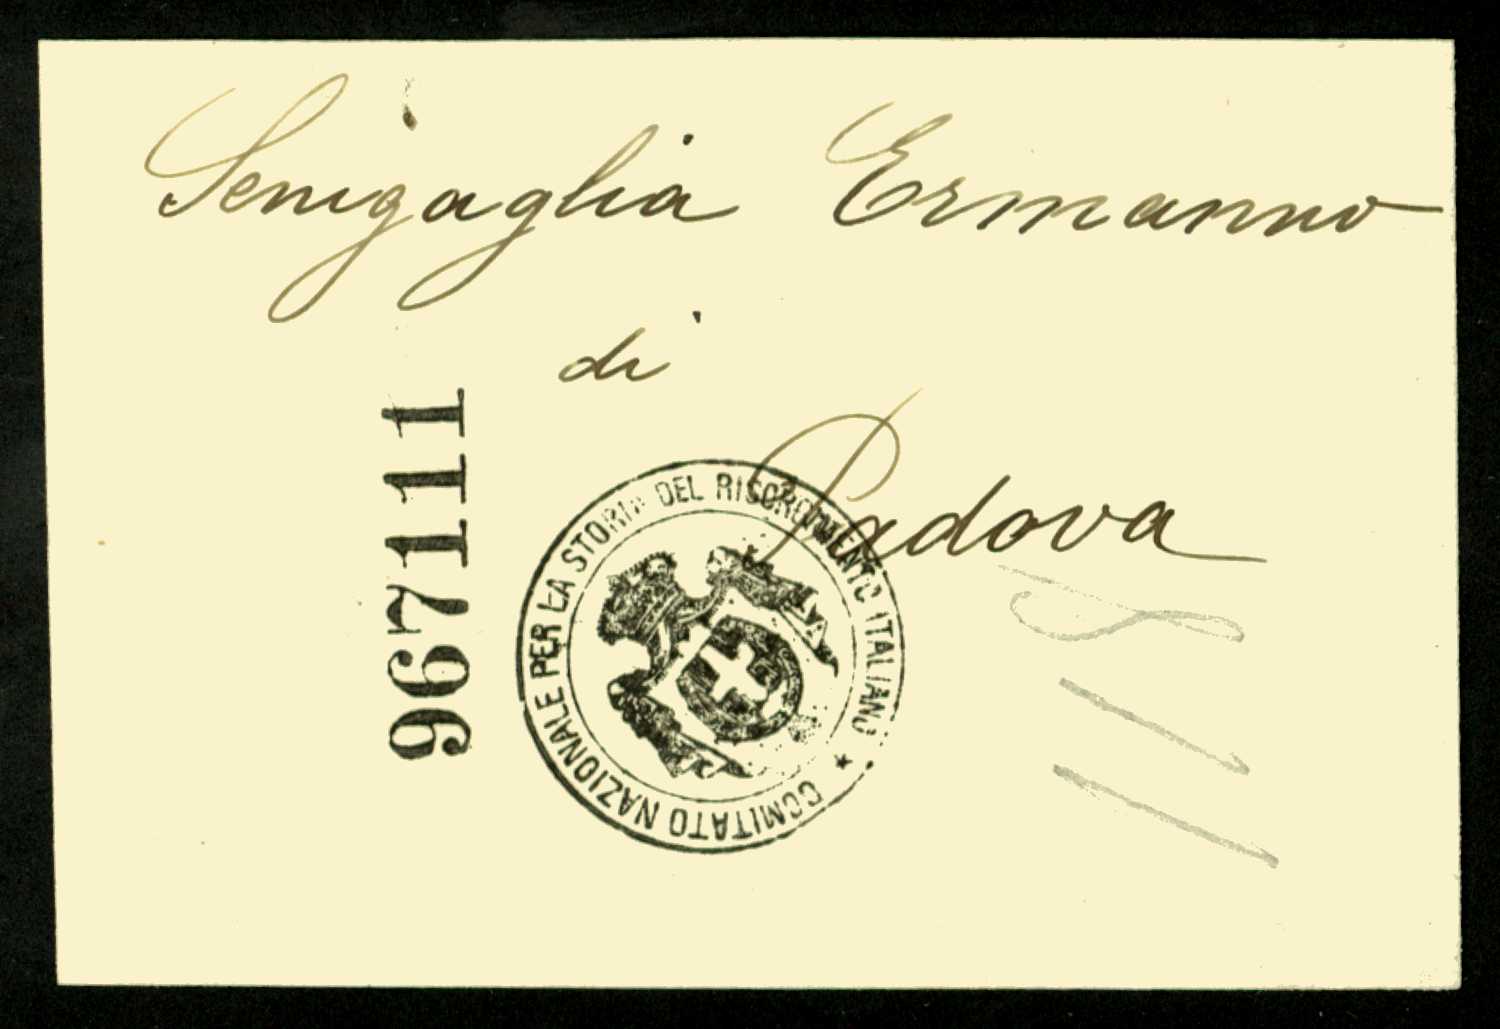 Senigaglia Ermanno
di
Padova
967111
COMITATO NAZIONALE PER LA STORIA DEL RISORGIMENTO ITALIANO ★